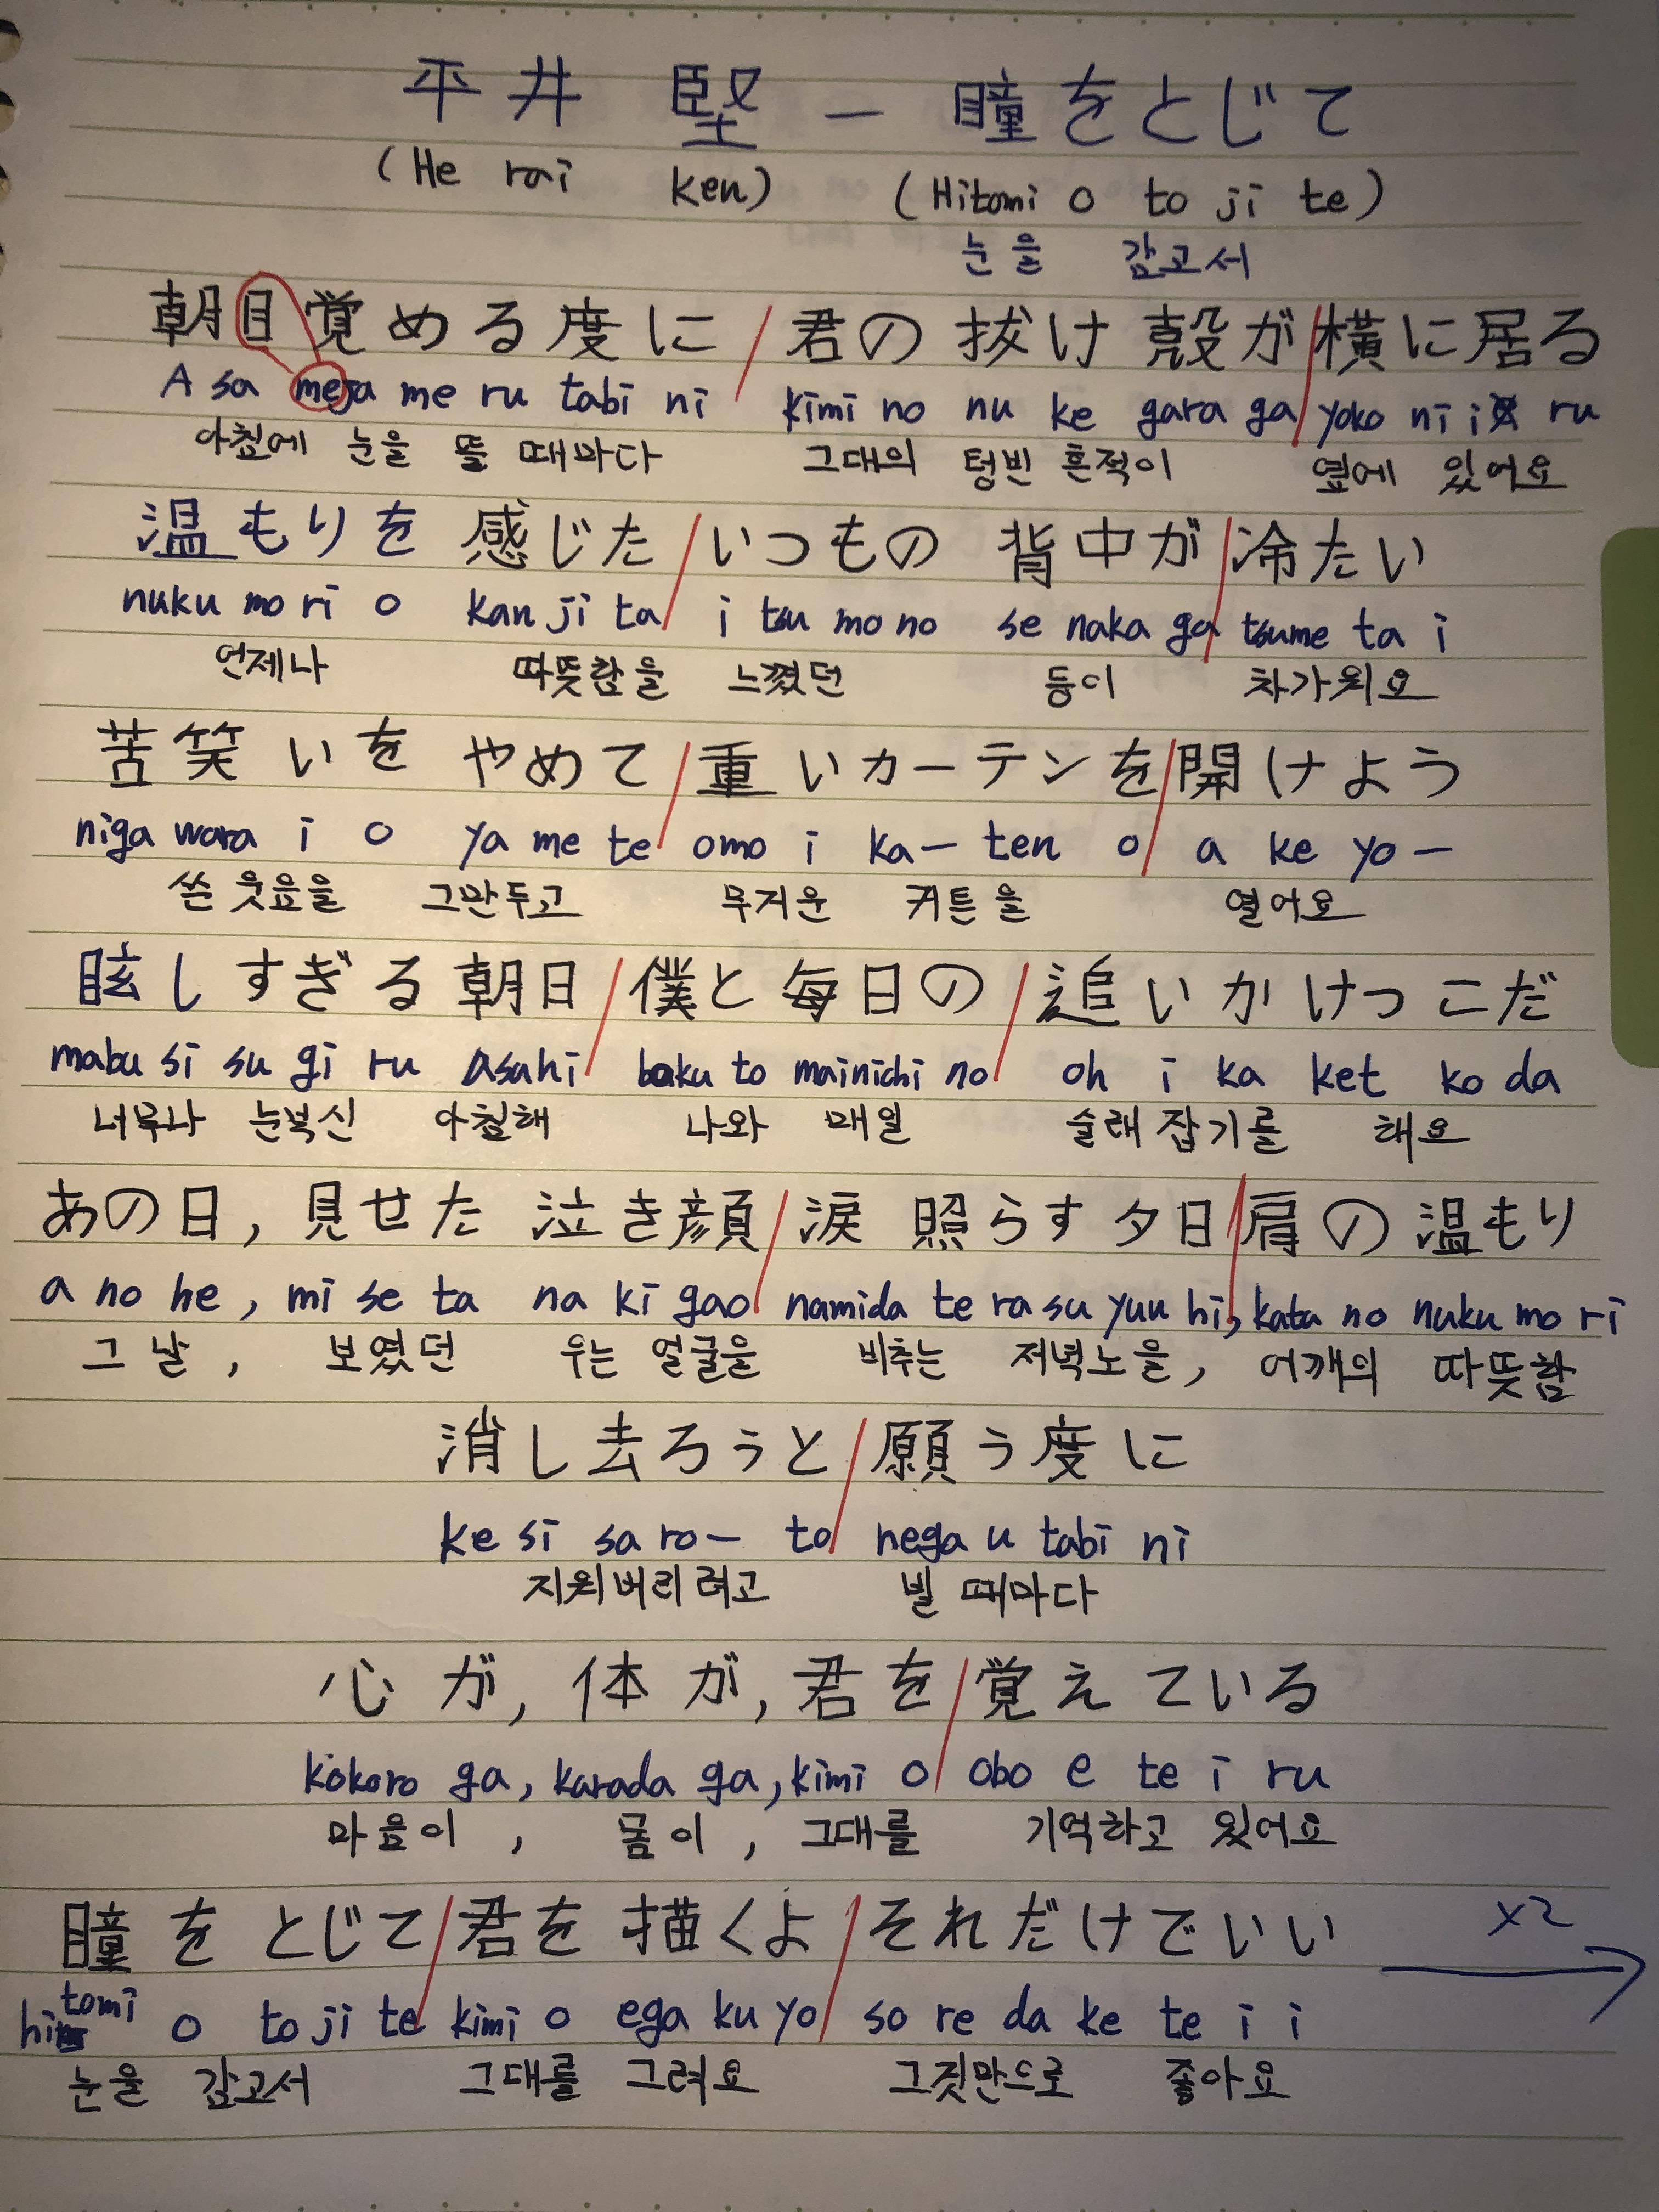 平井 堅 ー 瞳をとじて
(He rai ken) (Hitomi o to ji te)
눈을 감고서
朝目覚める度に / 君の抜け殻が / 横に居る
A sa mega me ru tabi ni / kimi no nu ke gara ga / yoko ni i ru
아침에 눈을 뜰 때마다 그대의 텅빈 흔적이 옆에 있어요
温もりを 感じた / いつもの 背中が / 冷たい
nuku mo ri o kan ji ta / i tsu mo no se naka ga / tsume ta i
언제나 따뜻함을 느꼈던 등이 차가워요
苦笑いを やめて / 重いカーテンを / 開けよう
niga wara i o ya me te / omo i ka- ten o / a ke yo -
쓴 웃음을 그만두고 무거운 커튼을 열어요
眩しすぎる朝日 / 僕と毎日の / 追いかけっこだ
mabu si su gi ru asahi / boku to mainichi no / oh i ka ket ko da
너무나 눈부신 아침해 나와 매일 술래잡기를 해요
あの日, 見せた 泣き顔 / 涙 照らす夕日 / 肩の温もり
a no he, mi se ta na ki gao / namida te ra su yuu hi, / kata no nuku mo ri
그 날, 보였던 우는 얼굴을 비추는 저녁노을, 어깨의 따뜻함
消し去ろうと / 願う度に
ke si sa ro - to / nega u tabi ni
지워버리려고 빌 때마다
心が, 体が, 君を / 覚えている
kokoro ga, karada ga, kimi o / obo e te i ru
마음이, 몸이, 그대를 기억하고 있어요
瞳をとじて / 君を描くよ / それだけでいい x2
hitomi o to ji te / kimi o ega ku yo / so re da ke te i i
눈을 감고서 그대를 그려요 그것만으로 좋아요